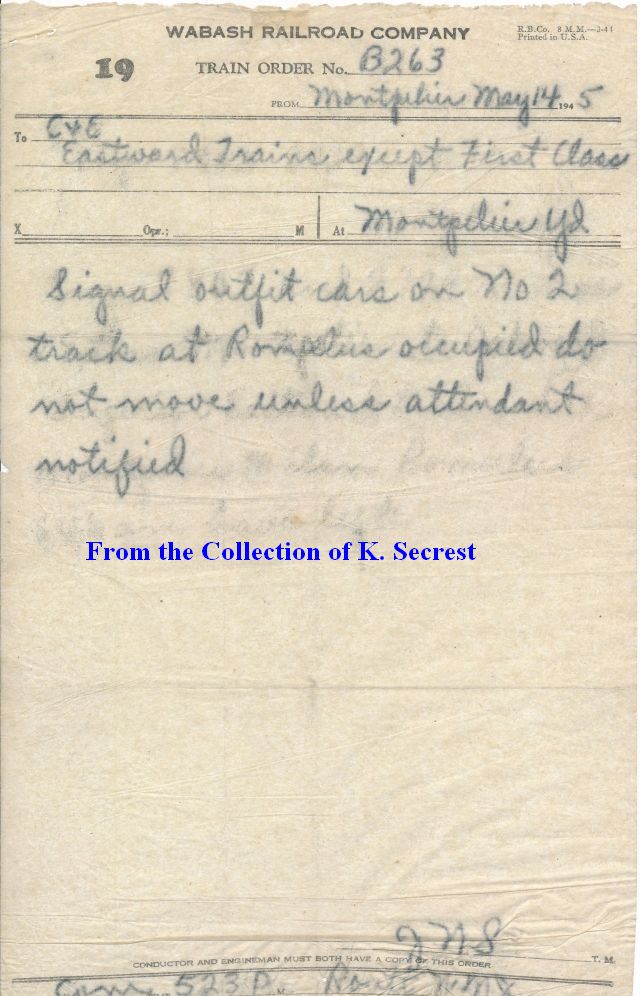 WABASH RAILROAD COMPANY
R.B.Co. 8 M.M.—3-44
Printed in U.S.A.
19
TRAIN ORDER No. B263
FROM Montpelier May 14 1945
To C&E
Eastward Trains except First Class
X Opr.; M At Montpelier Yd
Signal outfit cars on No 2
track at Romulus occupied do
not move unless attendant
notified
From the Collection of K. Secrest
JNS
CONDUCTOR AND ENGINEMAN MUST BOTH HAVE A COPY OF THIS ORDER T. M.
Com 523 P M